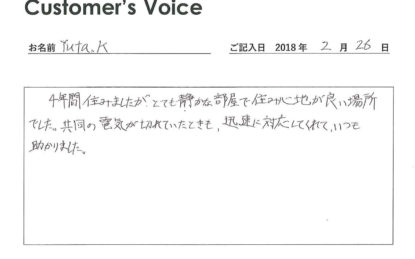 Customer's Voice
お名前 Yuta.K ご記入日 2018 年 2 月 26 日
4年間住みましたが、とても静かな部屋で住み心地が良い場所
でした。共同の電気が切れていたときも、迅速に対応してくれて、いつも
助かりました。